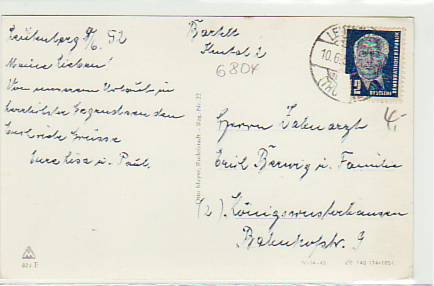 Leutenberg 9/6. 52
Meine Lieben!
Von unserem Urlaub in
herrlichster Gegend senden
herzliche Grüsse
Eure Lisa u. Paul.
Bartelt
Ilmtal 2
6804
LEUTEN
10.6.
(THÜ
DEUTSCHE
4,-
Herrn Zahnarzt
Emil Berwig u. Familie
(2) Königswusterhausen
Bahnhofstr. 9
Otto Meyer, Rudolstadt - Reg.-Nr. 22